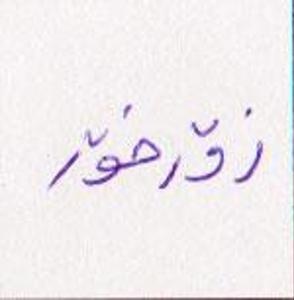 زۆرخۆر